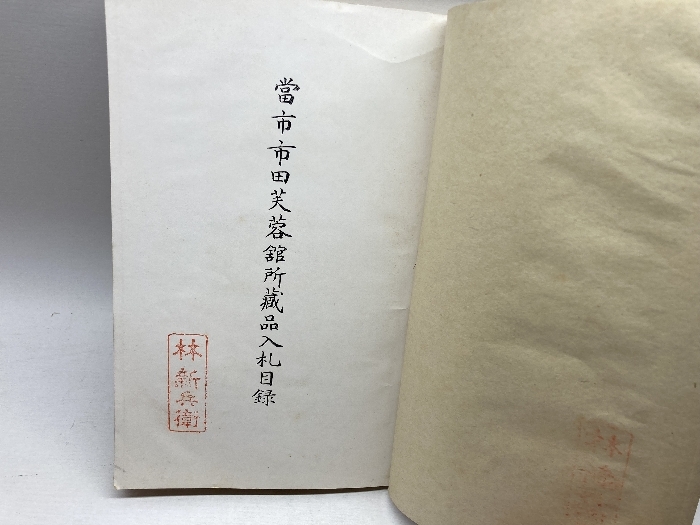 當市市田芙蓉舘所藏品入札目録
林新兵衛